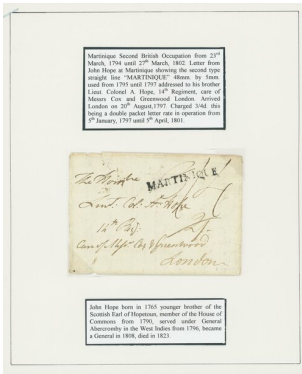 Martinique Second British Occupation from 23rd
March, 1794 until 27th March, 1802. Letter from
John Hope at Martinique showing the second type
straight line "MARTINIQUE" 48mm. by 5mm.
used from 1795 until 1797 addressed to his brother
Lieut. Colonel A. Hope, 14th Regiment, care of
Messrs Cox and Greenwood London. Arrived
London on 20th August,1797. Charged 3/4d. this
being a double packet letter rate in operation from
5th January, 1797 until 5th April, 1801.
MARTINIQUE
Lieut: Col: A: Hope
14th Reg:
Care of Messrs Cox & Greenwood
London
John Hope born in 1765 younger brother of the
Scottish Earl of Hopetoun, member of the House of
Commons from 1790, served under General
Abercromby in the West Indies from 1796, became
a General in 1808, died in 1823.